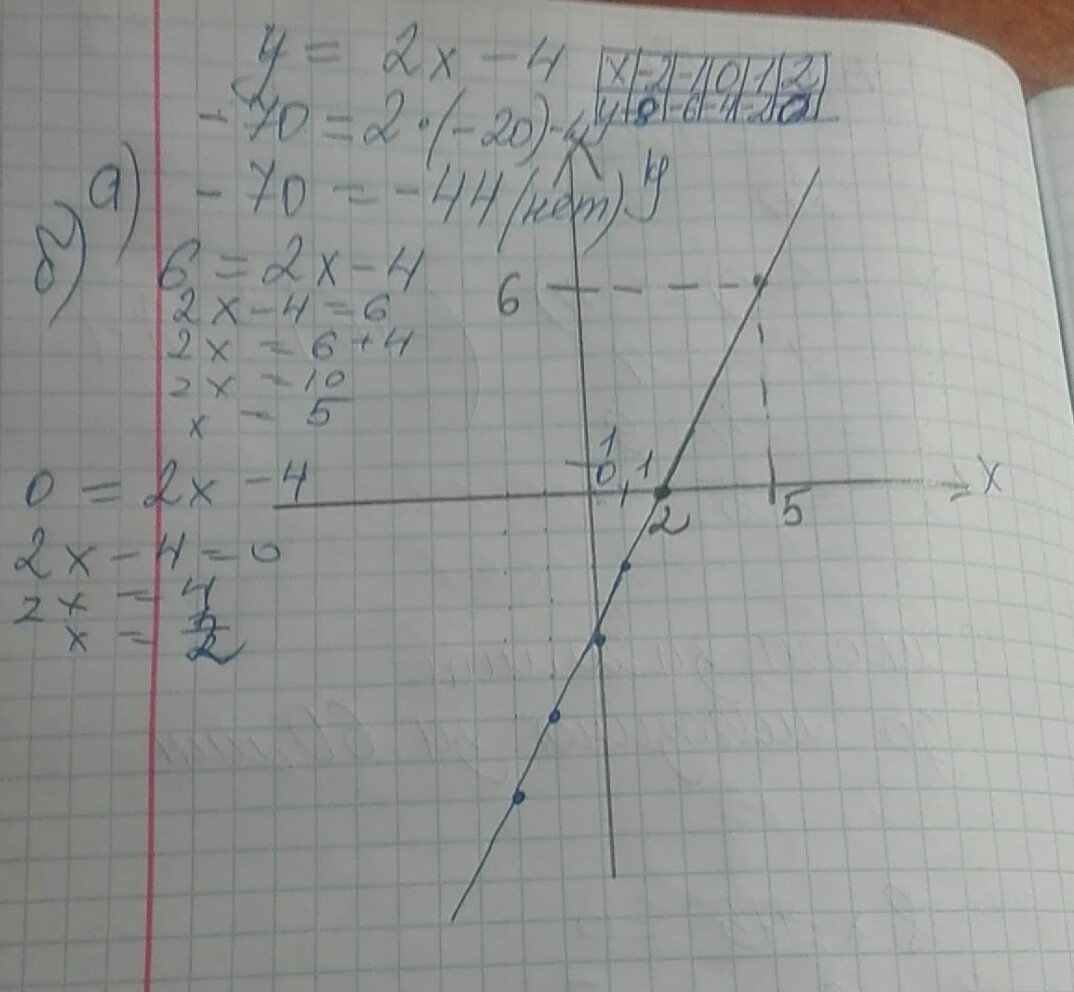 y = 2x - 4
x -2 -1 0 1 2
y 8 -6 -4 -2 0
-70 = 2·(-20)-4
а) -70 = -44 (нет)
y
б) 6 = 2x - 4
2x - 4 = 6
2x = 6 + 4
2x = 10
x = 5
0 = 2x - 4
2x - 4 = 0
2x = 4
x = 2
6
1
0 1
2
5
x